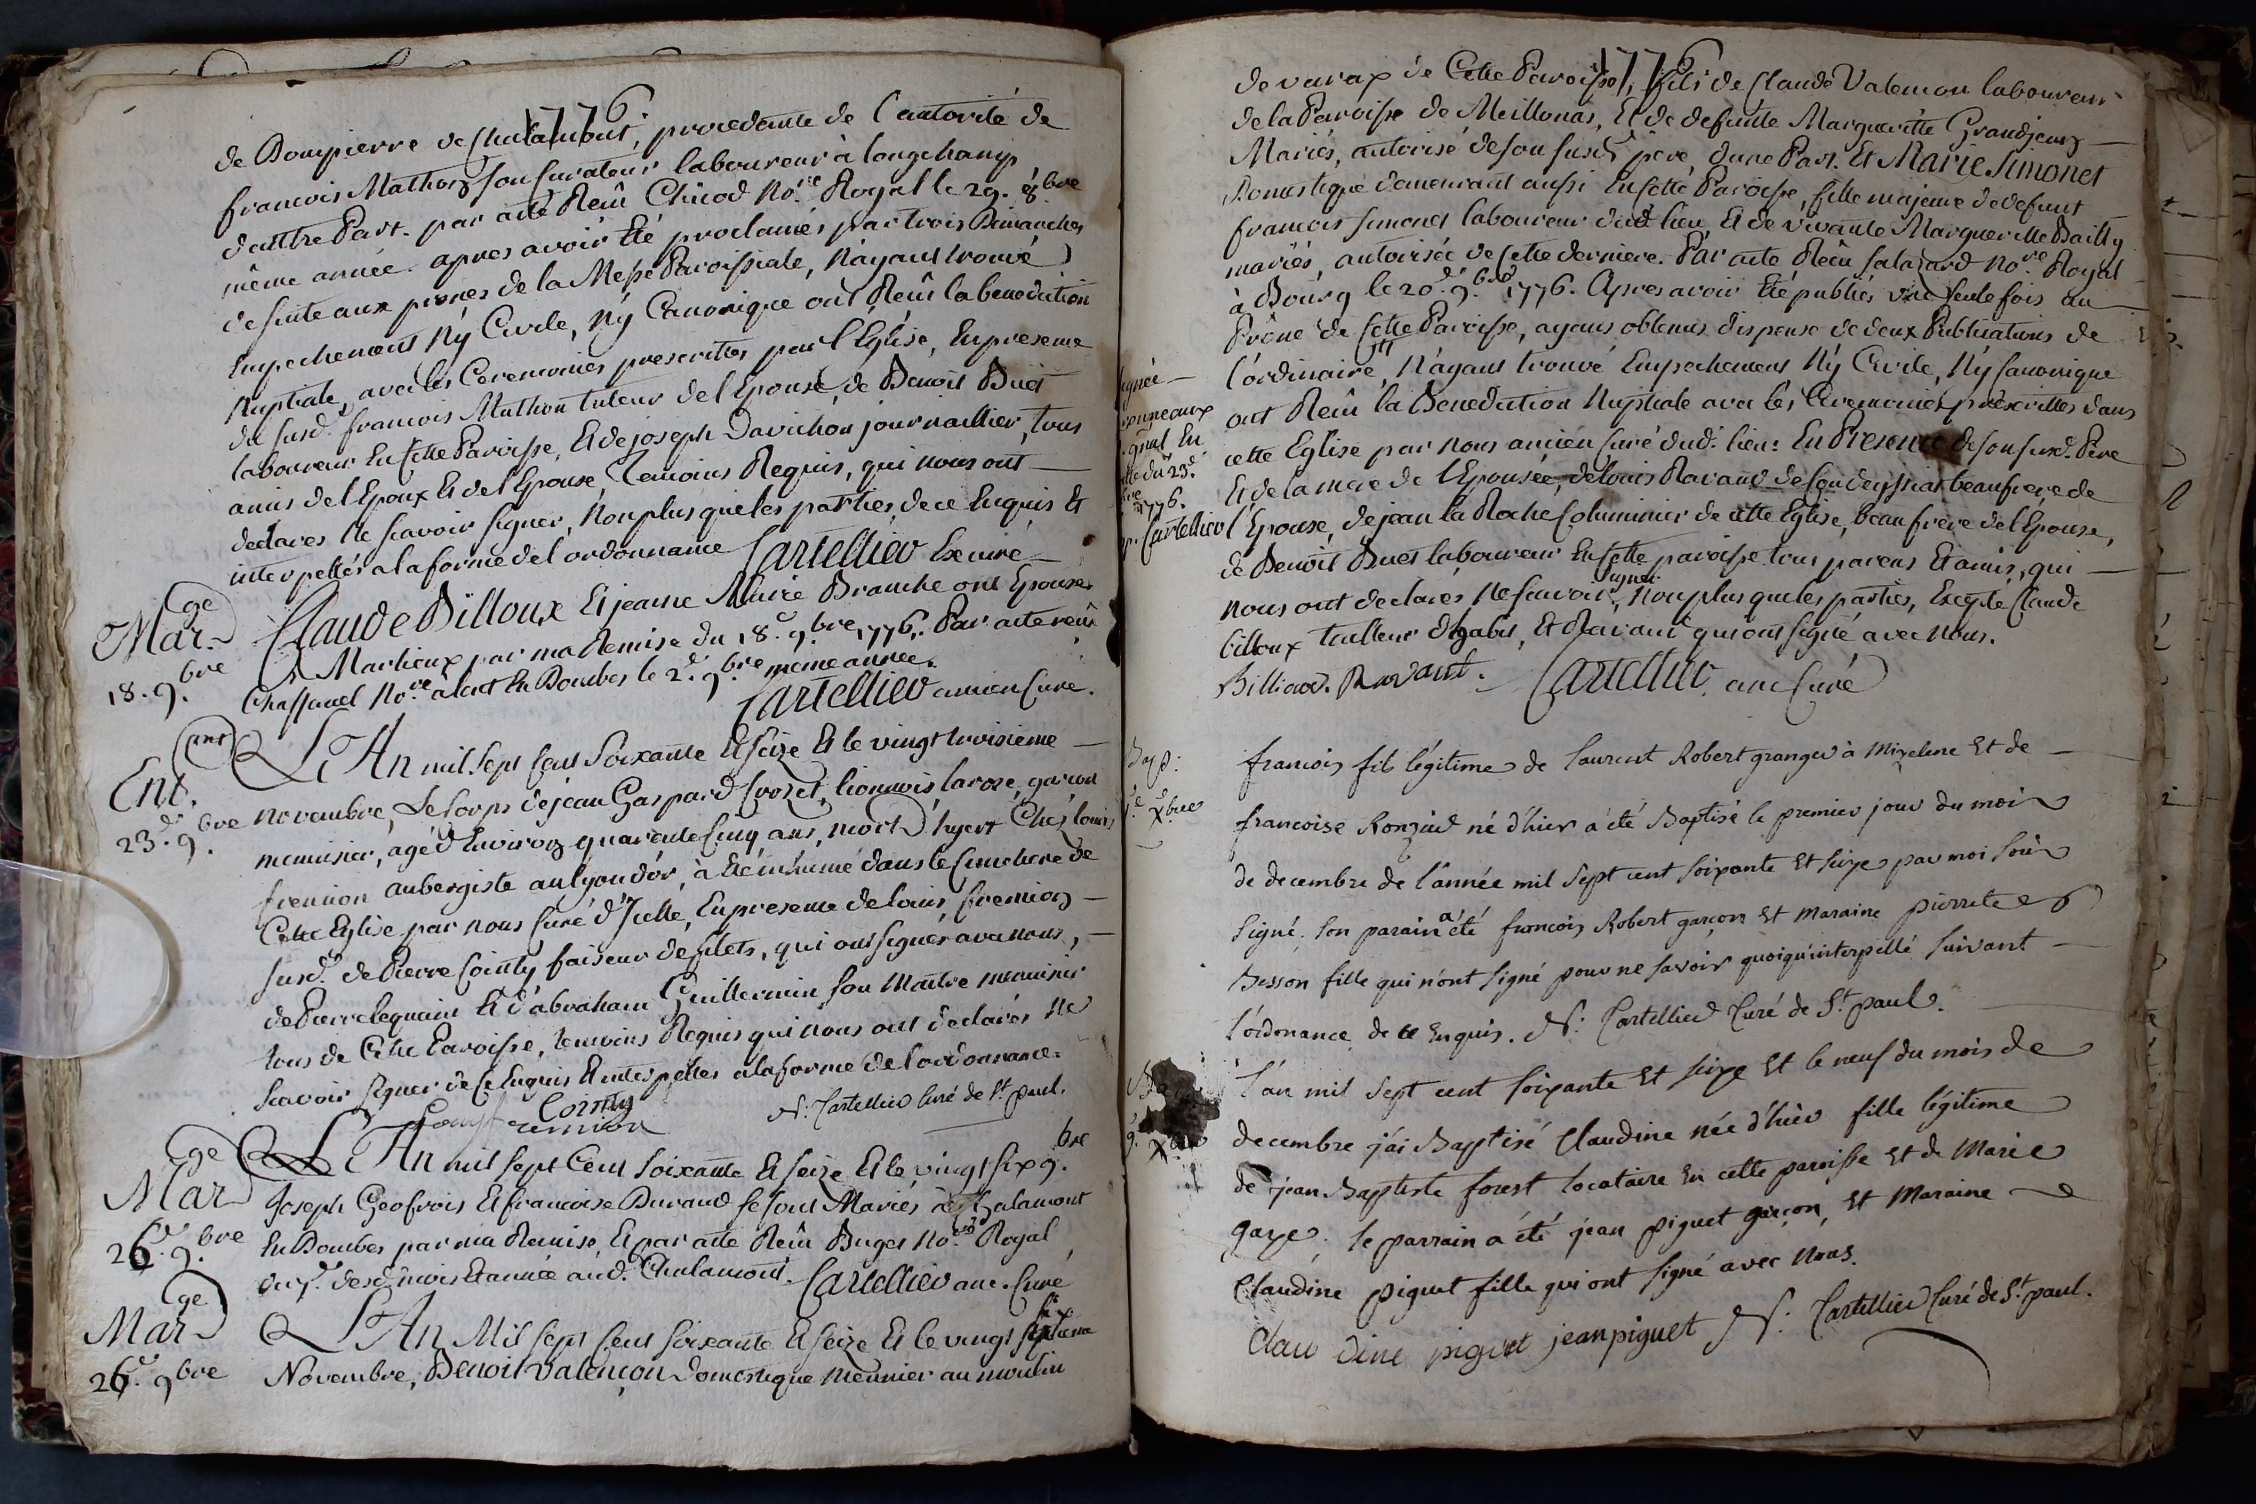 1776
de Dompierre de Chalamont, procedante de l'autorité de
francois Mathon son curateur laboureur à longchamp
d'auttre Part. par acte Reçû Chicod No.re Royal le 29. 8.bre
même année. apres avoir Eté proclamés par trois Dimanches
de suite aux prones de la Messe Paroissiale, N'ayant trouvé
Empechement Ny Civile, Ny Canonique ont Reçû la benediction
Nuptiale, avec les Ceremonies prescrittes par l'Eglise, En presence
du susd. francois Mathon tuteur de l'Epouse, de Benoit Buet
laboureur En cette Paroisse, Et de joseph Davichon journaillier, tous
amis de l'Epoux Et de l'Epouse, Temoins Requis, qui nous ont
declarés Ne scavoir signer, Non plus que les parties, de ce Enquis Et
interpellés a la forme de l'ordonnance Cartellier Ex curé
Mar.ge
18. 9.bre
Claude Billoux Et jeanne Marie Branche ont Epousés
à Marlieux par ma Remise du 18.e 9.bre 1776. Par acte reçû
Chassanel No.re à lent En Dombes le 2.d 9.bre meme année.
Cartellier ancien Curé.
Ent.
23.d 9.bre
L'An mil sept Cent Soixante Et seize Et le vingt troisieme
novembre, Le Corps de jean Gaspard Crozet, lionnois, larose, garçon
menuisier, agé d'Environ quarante Cinq ans, mort d'hyert Chés louis
fremion aubergiste au lyon d'or, à Eté inhumé dans le Cimetiere de
Cette Eglise par nous Curé d'Icelle, En presence de louis fremion
susd. de Pierre Cointy faiseur de filets, qui ont signés avec nous,
de Pierre lequain Et d'abraham Guillermin son Maitre menuisier
tous de Cette Paroisse, temoins Requis qui nous ont declarés Ne
Scavoir signer de Ce Enquis Et interpellés a la forme de l'ordonnance.
Cointy
Louis fremion
N: Cartellier Curé de St. paul.
Mar.ge
26.e 9.bre
L'An mil sept Cent Soixante Et seize Et le vingt six 9.bre
joseph Geofrois Et francoise Durand se sont Mariés à Chalamont
En Dombes par ma Remise, Et par acte Reçû Buget No.re Royal
du 7.e desd. mois Et année aud. Chalamont. Cartellier anc. Curé
Mar.ge
26.e 9.bre
L'An Mil sept Cent Soixante Et seize Et le vingt sixieme
Novembre, Benoit Valençon domestique Meunier au moulin
1776
de varax de Cette Paroisse, fils de Claude Valencon laboureur
de la Paroisse de Meillonas, Et de defunte Margueritte Grandjean
Mariés, autorisé de son susd. père, d'une Part. Et Marie Simonet
Domestique demeurant aussi En cette Paroisse, fille majeure de defunt
francois simonet laboureur dud. lieu, Et de vivante Margueritte Bailly
mariés, autorisée de Cette derniere. Par acte Reçû salazard No.re Royal
à Bourg le 20.e 9.bre 1776. Apres avoir Eté publiés une seule fois au
Prône de Cette Paroisse, ayant obtenus dispense de deux Publications de
l'ordinaire, N'ayant trouvé Empechement Ny Civile, Ny Canonique
ont Reçû la Benediction Nuptiale avec les Ceremonies prescrittes dans
cette Eglise par nous ancien Curé dud. lieu: En Presence de son susd. Père
Et de la mere de l'Epousée, de louis Ravand de Condeyssiat beaufrere de
l'Epouse, de jean la Roche Columinier de cette Eglise, beau frère de l'Epouse,
de Benoit Buet laboureur En cette paroisse tous parens Et amis, qui
nous ont declarés Ne scavoir signer, Non plus que les parties, Excepté Claude
billoux tailleur d'habit, Et Ravant qui ont signé avec nous.
Billioud. Ravant. Cartellier, anc Curé
signée
gnal En
du 23.d
1776.
Cartellier
Bapt:
1.e Xbre
francois fils légitime de laurent Robert granger à Mizeleine Et de
francoise Ronzied né d'hier a été Baptisé le premier jour du mois
de decembre de l'année mil sept cent soixante Et seize par moi sous
signé. son parain a été francois Robert garçon Et Maraine pierrete
Besson fille qui n'ont signé pour ne savoir quoiqu'interpellé suivant
l'ordonance de ce Enquis. N: Cartellier Curé de St. paul.
9. Xbre
l'an mil sept cent soixante Et seize Et le neuf du mois de
decembre j'ai Baptisé Claudine née d'hier fille légitime
de jean Baptiste forest locataire En cette paroisse Et de Marie
gaze. le parrain a été jean piguet garçon, Et Maraine
Claudine piguet fille qui ont signé avec nous.
Clau dine piguet jean piguet N: Cartellier Curé de St. paul.